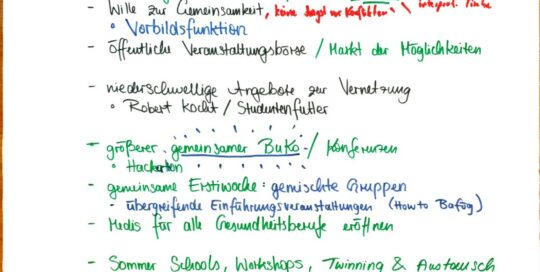 - Wille zur Gemeinsamkeit, keine Angst vor Konflikten
◦ Vorbildsfunktion
- öffentliche Veranstaltungsbörse / Markt der Möglichkeiten
- niederschwellige Angebote zur Vernetzung
◦ Robert kocht / Studentenfutter
- größerer gemeinsamer BuKo / Konferenzen
◦ Hackerton
- gemeinsame Erstiwoche: gemischte Gruppen
- übergreifende Einführungsveranstaltungen (How to Bafög)
- Medis für alle Gesundheitsberufe eröffnen
- Sommer Schools, Workshops, Twinning & Austausch